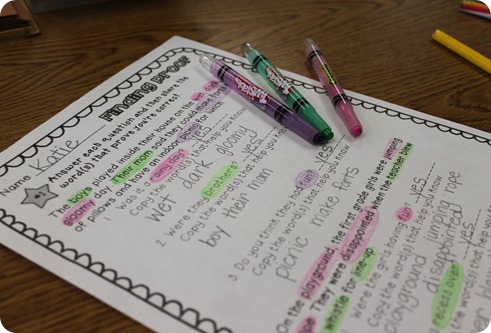 Finding Proof
Name Katie
Answer each question and then share the
word(s) that prove you're correct!
The boys played inside their house on the wet, dark,
gloomy day. Their mom said they could make forts
of pillows and have an indoor picnic for lunch.
Was it a rainy day? yes
Copy the word(s) that help you know
wet dark gloomy
2. Were they brothers? yes
Copy the word(s) that help you know
boy their mom
3. Do you think they had fun? yes
Copy the word(s) that help you know
picnic make forts
On the playground, the first grade girls were jumping
rope. They were disappointed when the teacher blew
whistle for line-up.
Were the girls having fun? yes
Copy the word(s) that help you know
playground jumping rope
disappointed
recess over yes